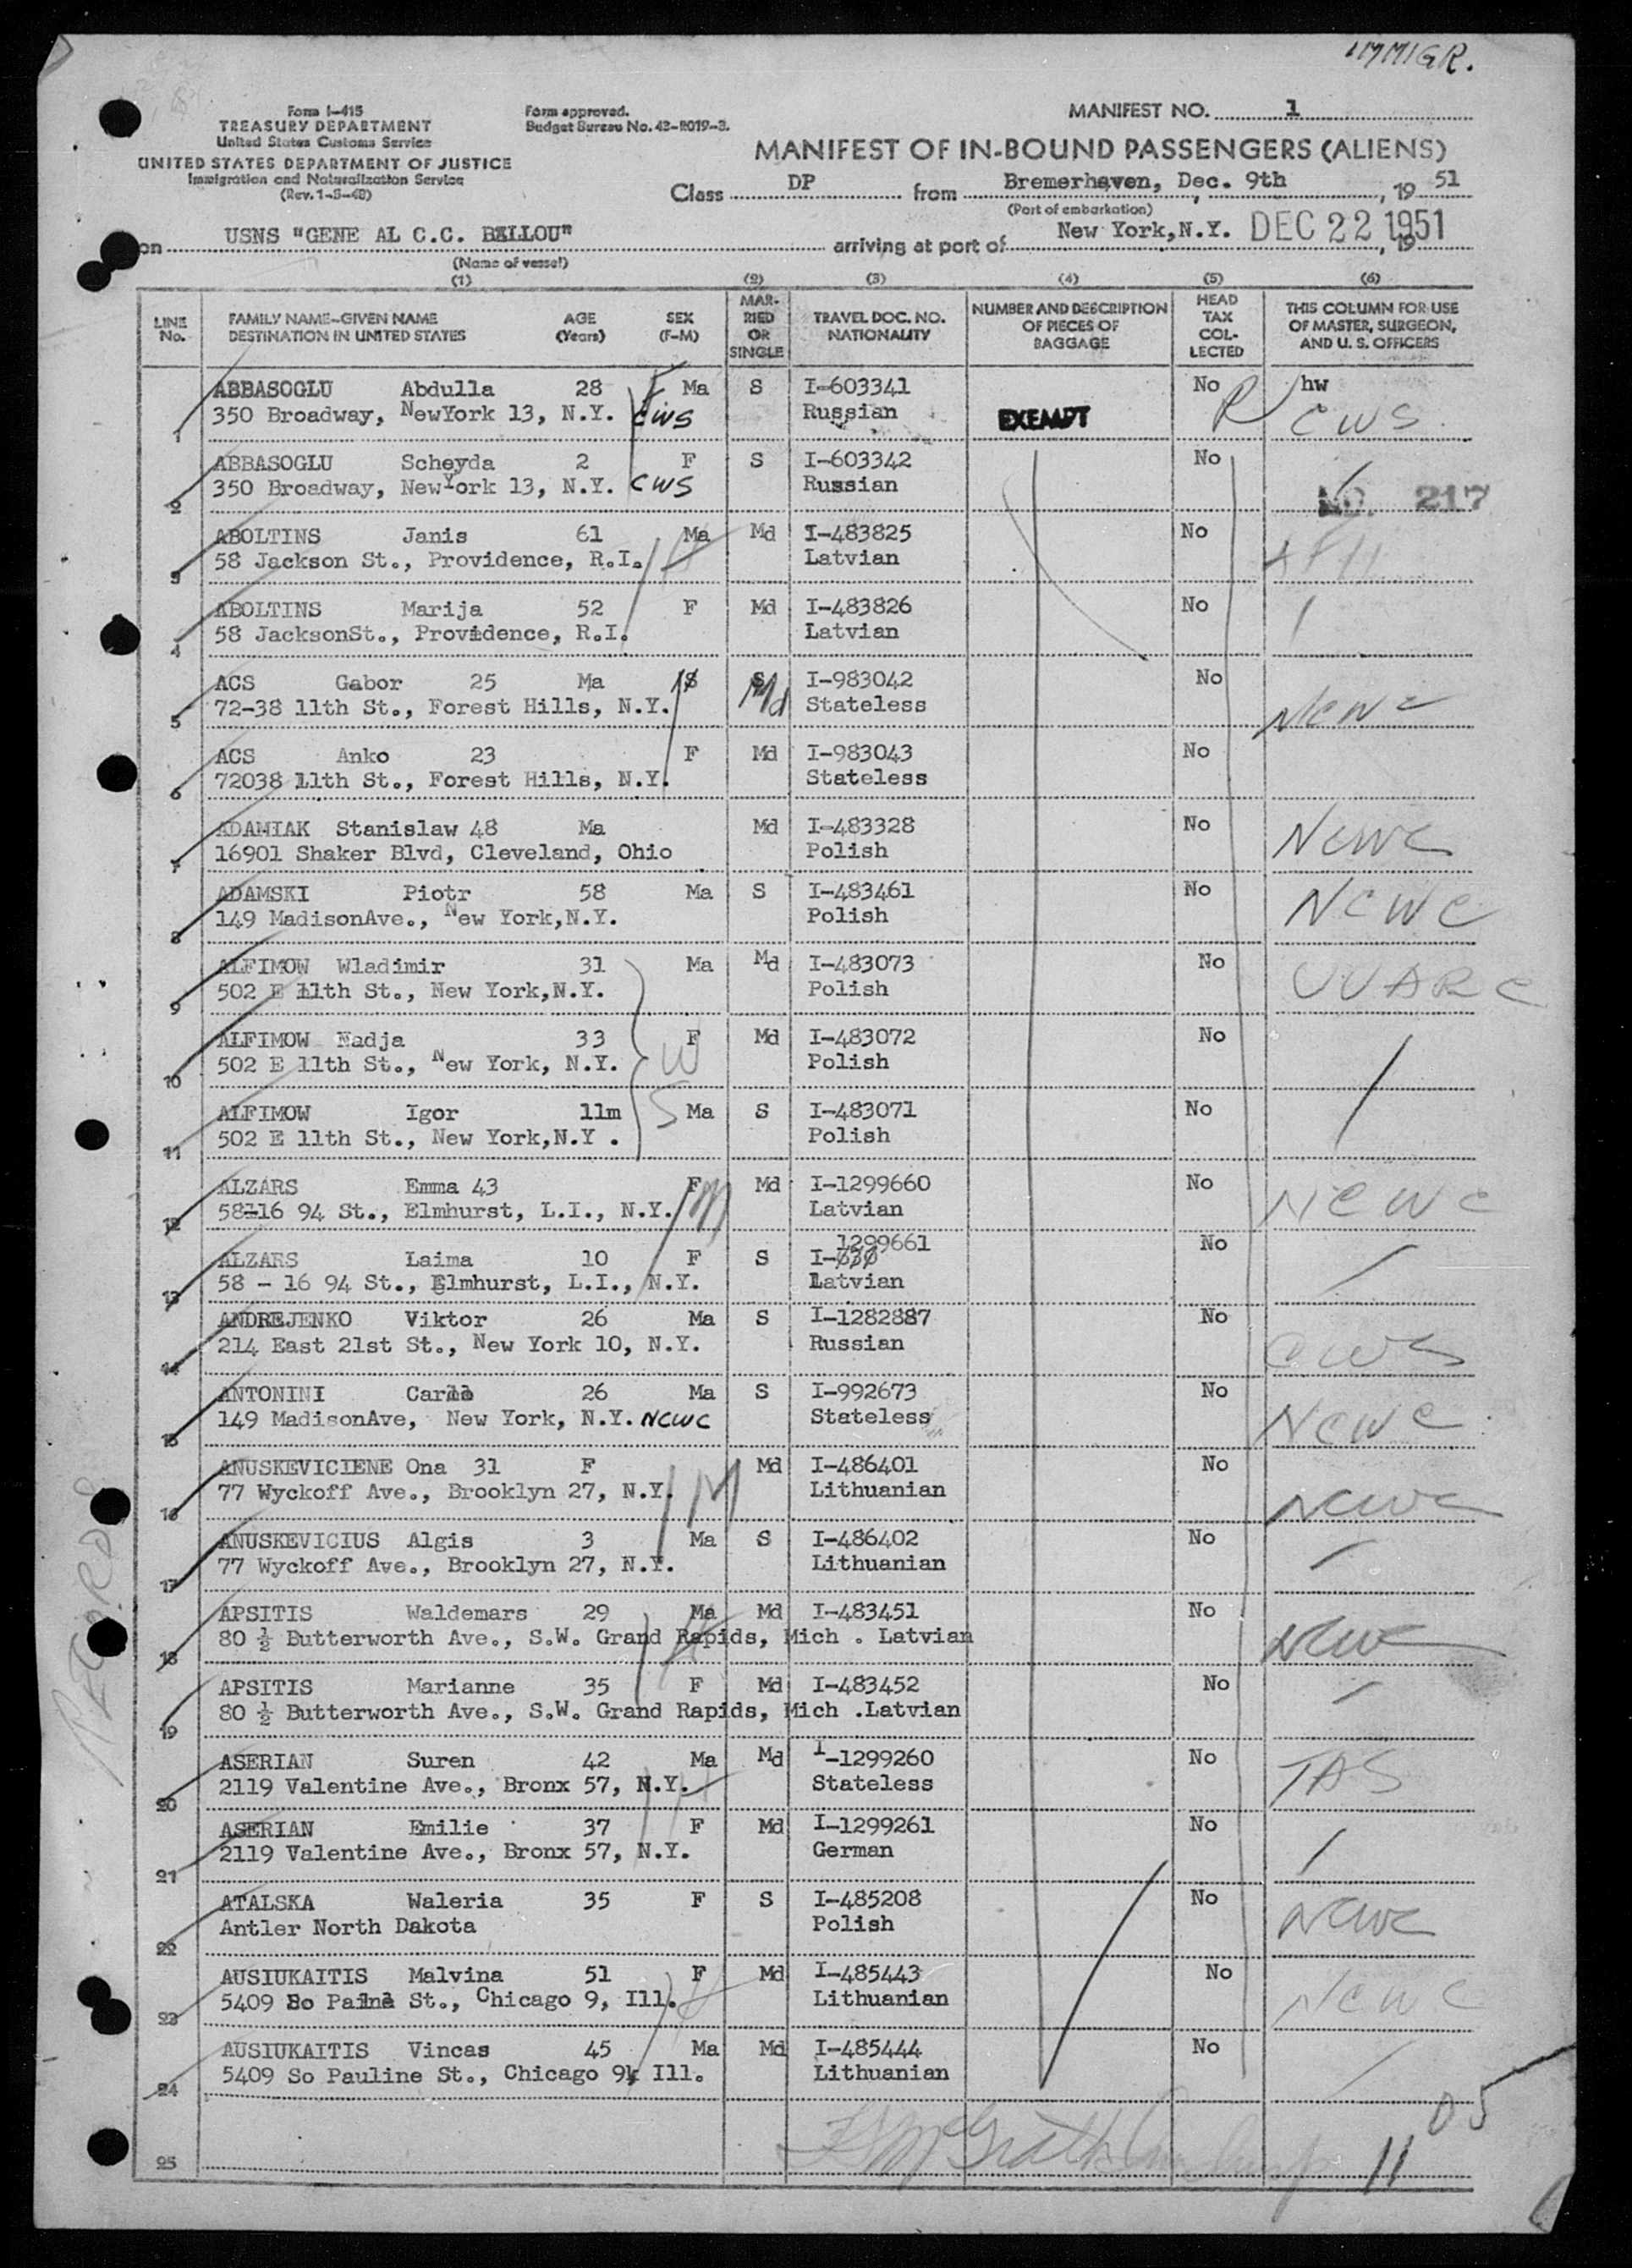 IMMIGR.
Form I-415
TREASURY DEPARTMENT
United States Customs Service
UNITED STATES DEPARTMENT OF JUSTICE
Immigration and Naturalization Service
(Rev. 1-3-48)
Form approved.
Budget Bureau No. 43-R019-3.
MANIFEST NO. 1
MANIFEST OF IN-BOUND PASSENGERS (ALIENS)
Class DP from Bremerhaven, Dec. 9th, 19 51
(Port of embarkation)
on USNS "GENE AL C.C. BALLOU" arriving at port of New York,N.Y. DEC 22 1951, 19
(Name of vessel)
(1) (2) (3) (4) (5) (6)
LINE No. FAMILY NAME-GIVEN NAME DESTINATION IN UNITED STATES AGE (Years) SEX (F-M) MARRIED OR SINGLE TRAVEL DOC. NO. NATIONALITY NUMBER AND DESCRIPTION OF PIECES OF BAGGAGE HEAD TAX COLLECTED THIS COLUMN FOR USE OF MASTER, SURGEON, AND U. S. OFFICERS
ABBASOGLU Abdulla 28 Ma S I-603341 No hw
1 350 Broadway, NewYork 13, N.Y. CWS Russian EXEMPT R CWS
ABBASOGLU Scheyda 2 F S I-603342 No
2 350 Broadway, NewYork 13, N.Y. CWS Russian NO. 217
ABOLTINS Janis 61 Ma Md I-483825 No
3 58 Jackson St., Providence, R.I. Latvian
ABOLTINS Marija 52 F Md I-483826 No
4 58 JacksonSt., Providence, R.I. Latvian
ACS Gabor 25 Ma S S Md I-983042 No
5 72-38 11th St., Forest Hills, N.Y. Stateless NCWC
ACS Anko 23 F Md I-983043 No
6 72038 11th St., Forest Hills, N.Y. Stateless
ADAMIAK Stanislaw 48 Ma Md I-483328 No
7 16901 Shaker Blvd, Cleveland, Ohio Polish NCWC
ADAMSKI Piotr 58 Ma S I-483461 No
8 149 MadisonAve., New York,N.Y. Polish NCWC
ALFIMOW Wladimir 31 Ma Md I-483073 No
9 502 E 11th St., New York,N.Y. Polish UUARC
ALFIMOW Nadja 33 F Md I-483072 No
10 502 E 11th St., New York, N.Y. W Polish
ALFIMOW Igor 11m S Ma S I-483071 No
11 502 E 11th St., New York,N.Y . Polish
ALZARS Emma 43 F Md I-1299660 No
12 58-16 94 St., Elmhurst, L.I., N.Y. M Latvian NCWC
1299661
ALZARS Laima 10 F S I-630 No
13 58 - 16 94 St., Elmhurst, L.I., N.Y. Latvian
ANDREJENKO Viktor 26 Ma S I-1282887 No
14 214 East 21st St., New York 10, N.Y. Russian CWS
ANTONINI Carlo 26 Ma S I-992673 No
15 149 MadisonAve, New York, N.Y. NCWC Stateless NCWC
ANUSKEVICIENE Ona 31 F Md I-486401 No
16 77 Wyckoff Ave., Brooklyn 27, N.Y. M Lithuanian NCWC
ANUSKEVICIUS Algis 3 Ma S I-486402 No
17 77 Wyckoff Ave., Brooklyn 27, N.Y. Lithuanian
APSITIS Waldemars 29 Ma Md I-483451 No
18 80 ½ Butterworth Ave., S.W. Grand Rapids, Mich . Latvian NCWC
APSITIS Marianne 35 F Md I-483452 No
19 80 ½ Butterworth Ave., S.W. Grand Rapids, Mich .Latvian
ASERIAN Suren 42 Ma Md I-1299260 No
20 2119 Valentine Ave., Bronx 57, N.Y. Stateless TAS
ASERIAN Emilie 37 F Md I-1299261 No
21 2119 Valentine Ave., Bronx 57, N.Y. German
ATALSKA Waleria 35 F S I-485208 No
22 Antler North Dakota Polish NCWC
AUSIUKAITIS Malvina 51 F Md I-485443 No
23 5409 So St., Chicago 9, Ill. Lithuanian NCWC
AUSIUKAITIS Vincas 45 Ma Md I-485444 No
24 5409 So Pauline St., Chicago 9, Ill. Lithuanian
05
25 11
RECORD